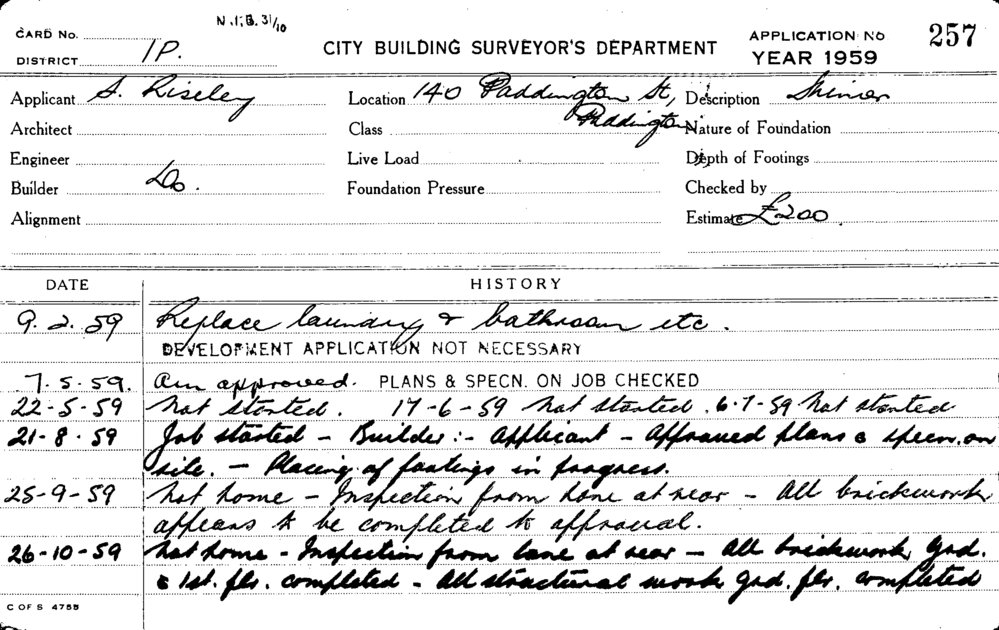 N.I.B. 31/10
CARD No.
DISTRICT 1P.
CITY BUILDING SURVEYOR'S DEPARTMENT
APPLICATION No 257
YEAR 1959
Applicant S. Riseley
Location 140 Paddington St, Paddington
Description Minor
Architect
Class
Nature of Foundation
Engineer
Live Load
Depth of Footings
Builder Do.
Foundation Pressure
Checked by
Alignment
Estimate £200.
DATE HISTORY
9.2.59 Replace laundry & bathroom etc.
DEVELOPMENT APPLICATION NOT NECESSARY
7.5.59. Am approved. PLANS & SPECN. ON JOB CHECKED
22-5-59 Not started. 17-6-59 Not started. 6-7-59 Not started
21-8-59 Job started - Builder:- Applicant - Approved plans & specn. on
site. - Placing of footings in progress.
25-9-59 Not home - Inspection from lane at rear - All brickwork
appears to be completed to approval.
26-10-59 Not home - Inspection from lane at rear - All brickwork Grd.
& 1st. flr. completed - All structural work Grd. flr. completed
C OF S 4755